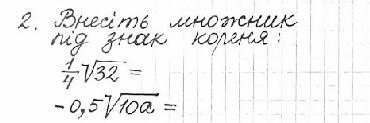 2. Внесіть множник
під знак кореня:
1/4 √32 =
-0,5√10a =